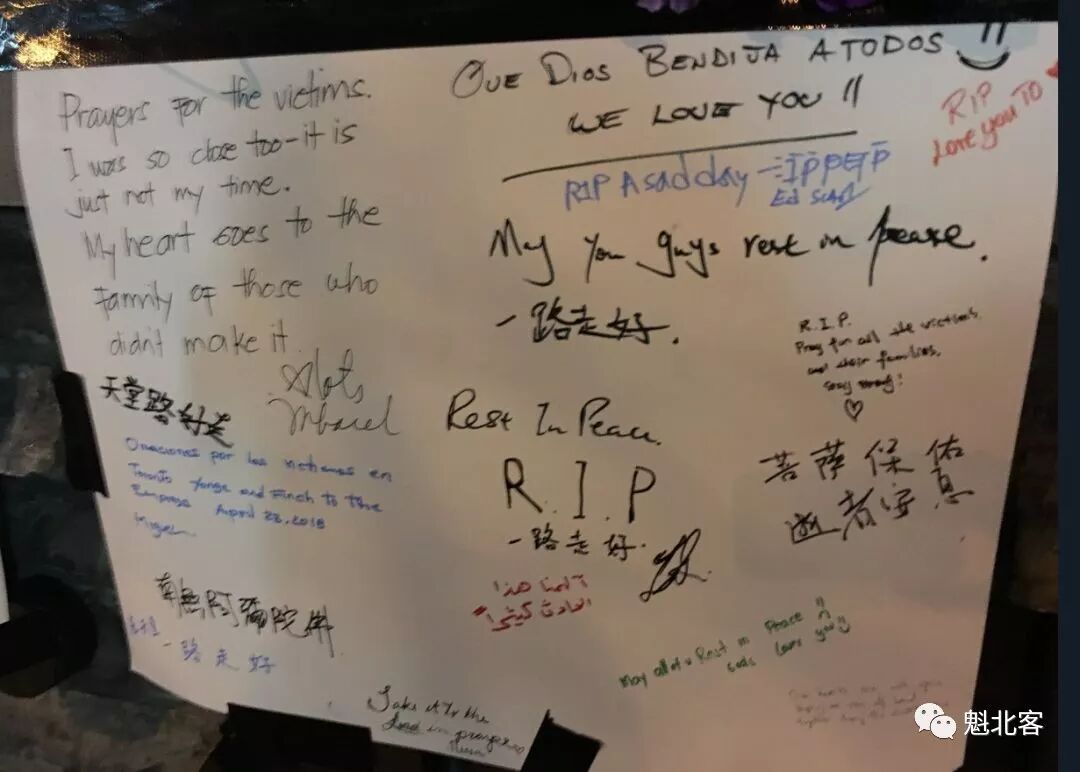 Prayers for the victims.
I was so close too-it is
just not my time.
My heart goes to the
family of those who
didn't make it
天堂路好走
Oraciones por las victimas en
Toronto Yonge and Finch to the
Empress April 23, 2018
Miguel
南無阿彌陀佛
一路走好
QUE DIOS BENDIJA A TODOS
WE LOVE YOU !!
RIP
Love you TO
RIP A sad day
May you guys rest in peace.
一路走好.
R.I.P.
Pray for all the victims
and their families.
stay strong!
Rest In Peace.
R.I.P
一路走好.
菩萨保佑
逝者安息
آلمنا هذا
الحادث كثيرا
May all of u Rest in Peace
gods loves you
Take it to the
Lord in prayer
魁北客